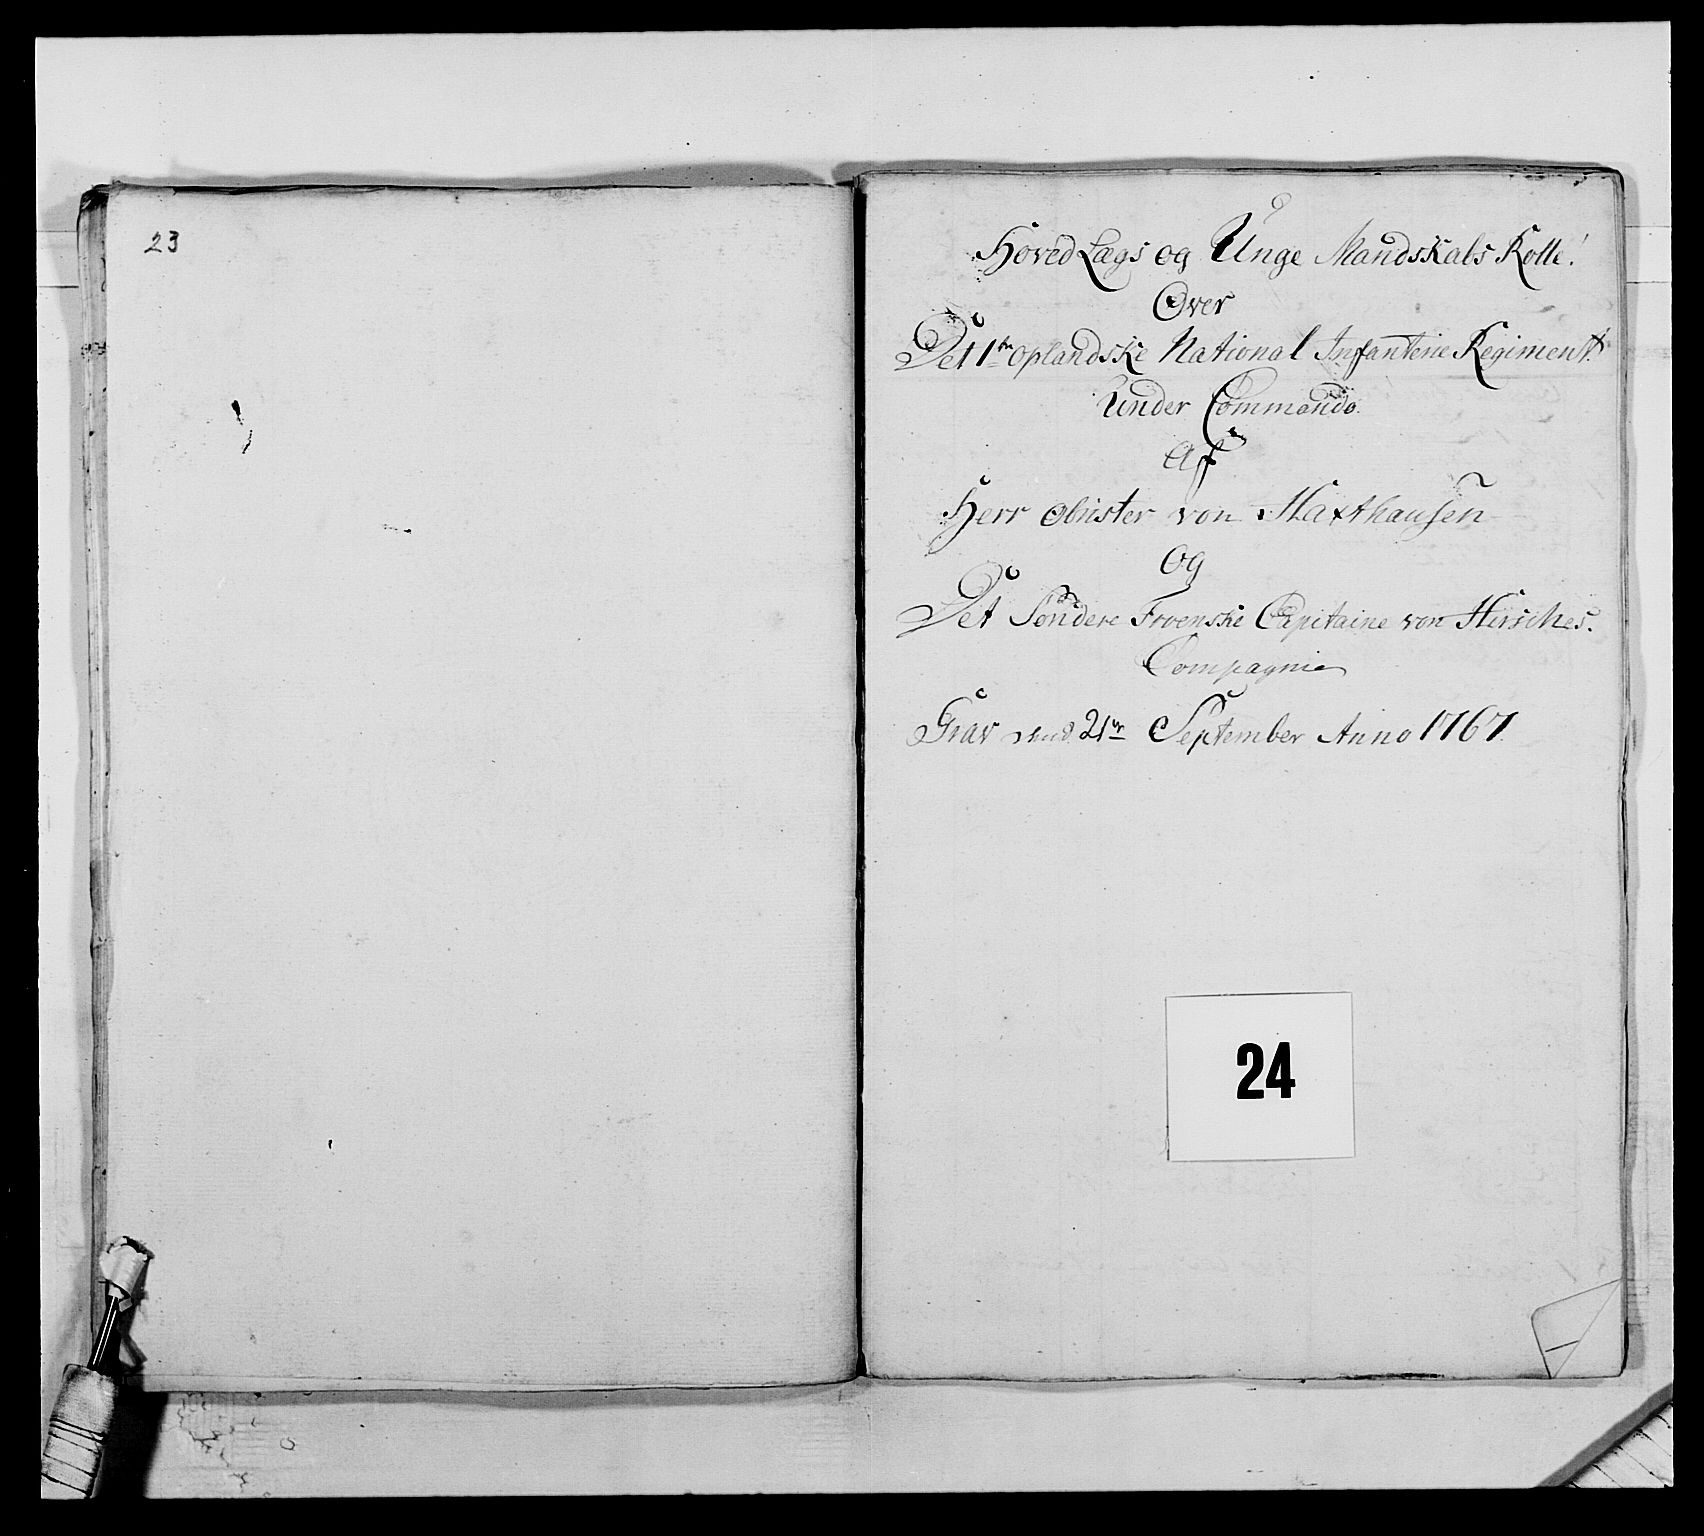 23
Hoved Lægs og Unge Mandskabs Rolle!
Over
Det 1te Oplandske National Infanterie Regiment
Under Commando.
Af
Herr Obrister von Haxthausen
Og
Det Søndere Froenske Capitaine von Hirsches.
Compagnie
Grav d. 21de September Anno 1767.
24